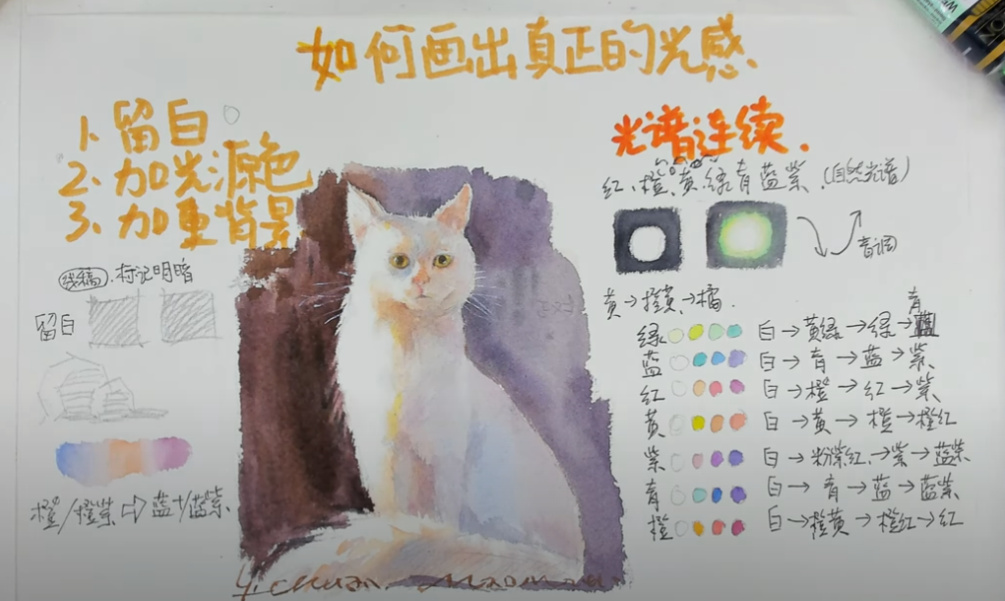 如何画出真正的光感
1、留白
2、加光源色
3、加重背景
线稿、标记明暗
留白
橙/橙紫⇨蓝/蓝紫
光谱连续.
红、橙、黄、绿、青、蓝、紫.(自然光谱)
音调
黄→橙黄→橘.
绿 白→黄绿→绿→青蓝
蓝 白→青→蓝→紫
红 白→橙→红→紫
黄 白→黄→橙→橙红
紫 白→粉紫红→紫→蓝紫
青 白→青→蓝→蓝紫
橙 白→橙黄→橙红→红